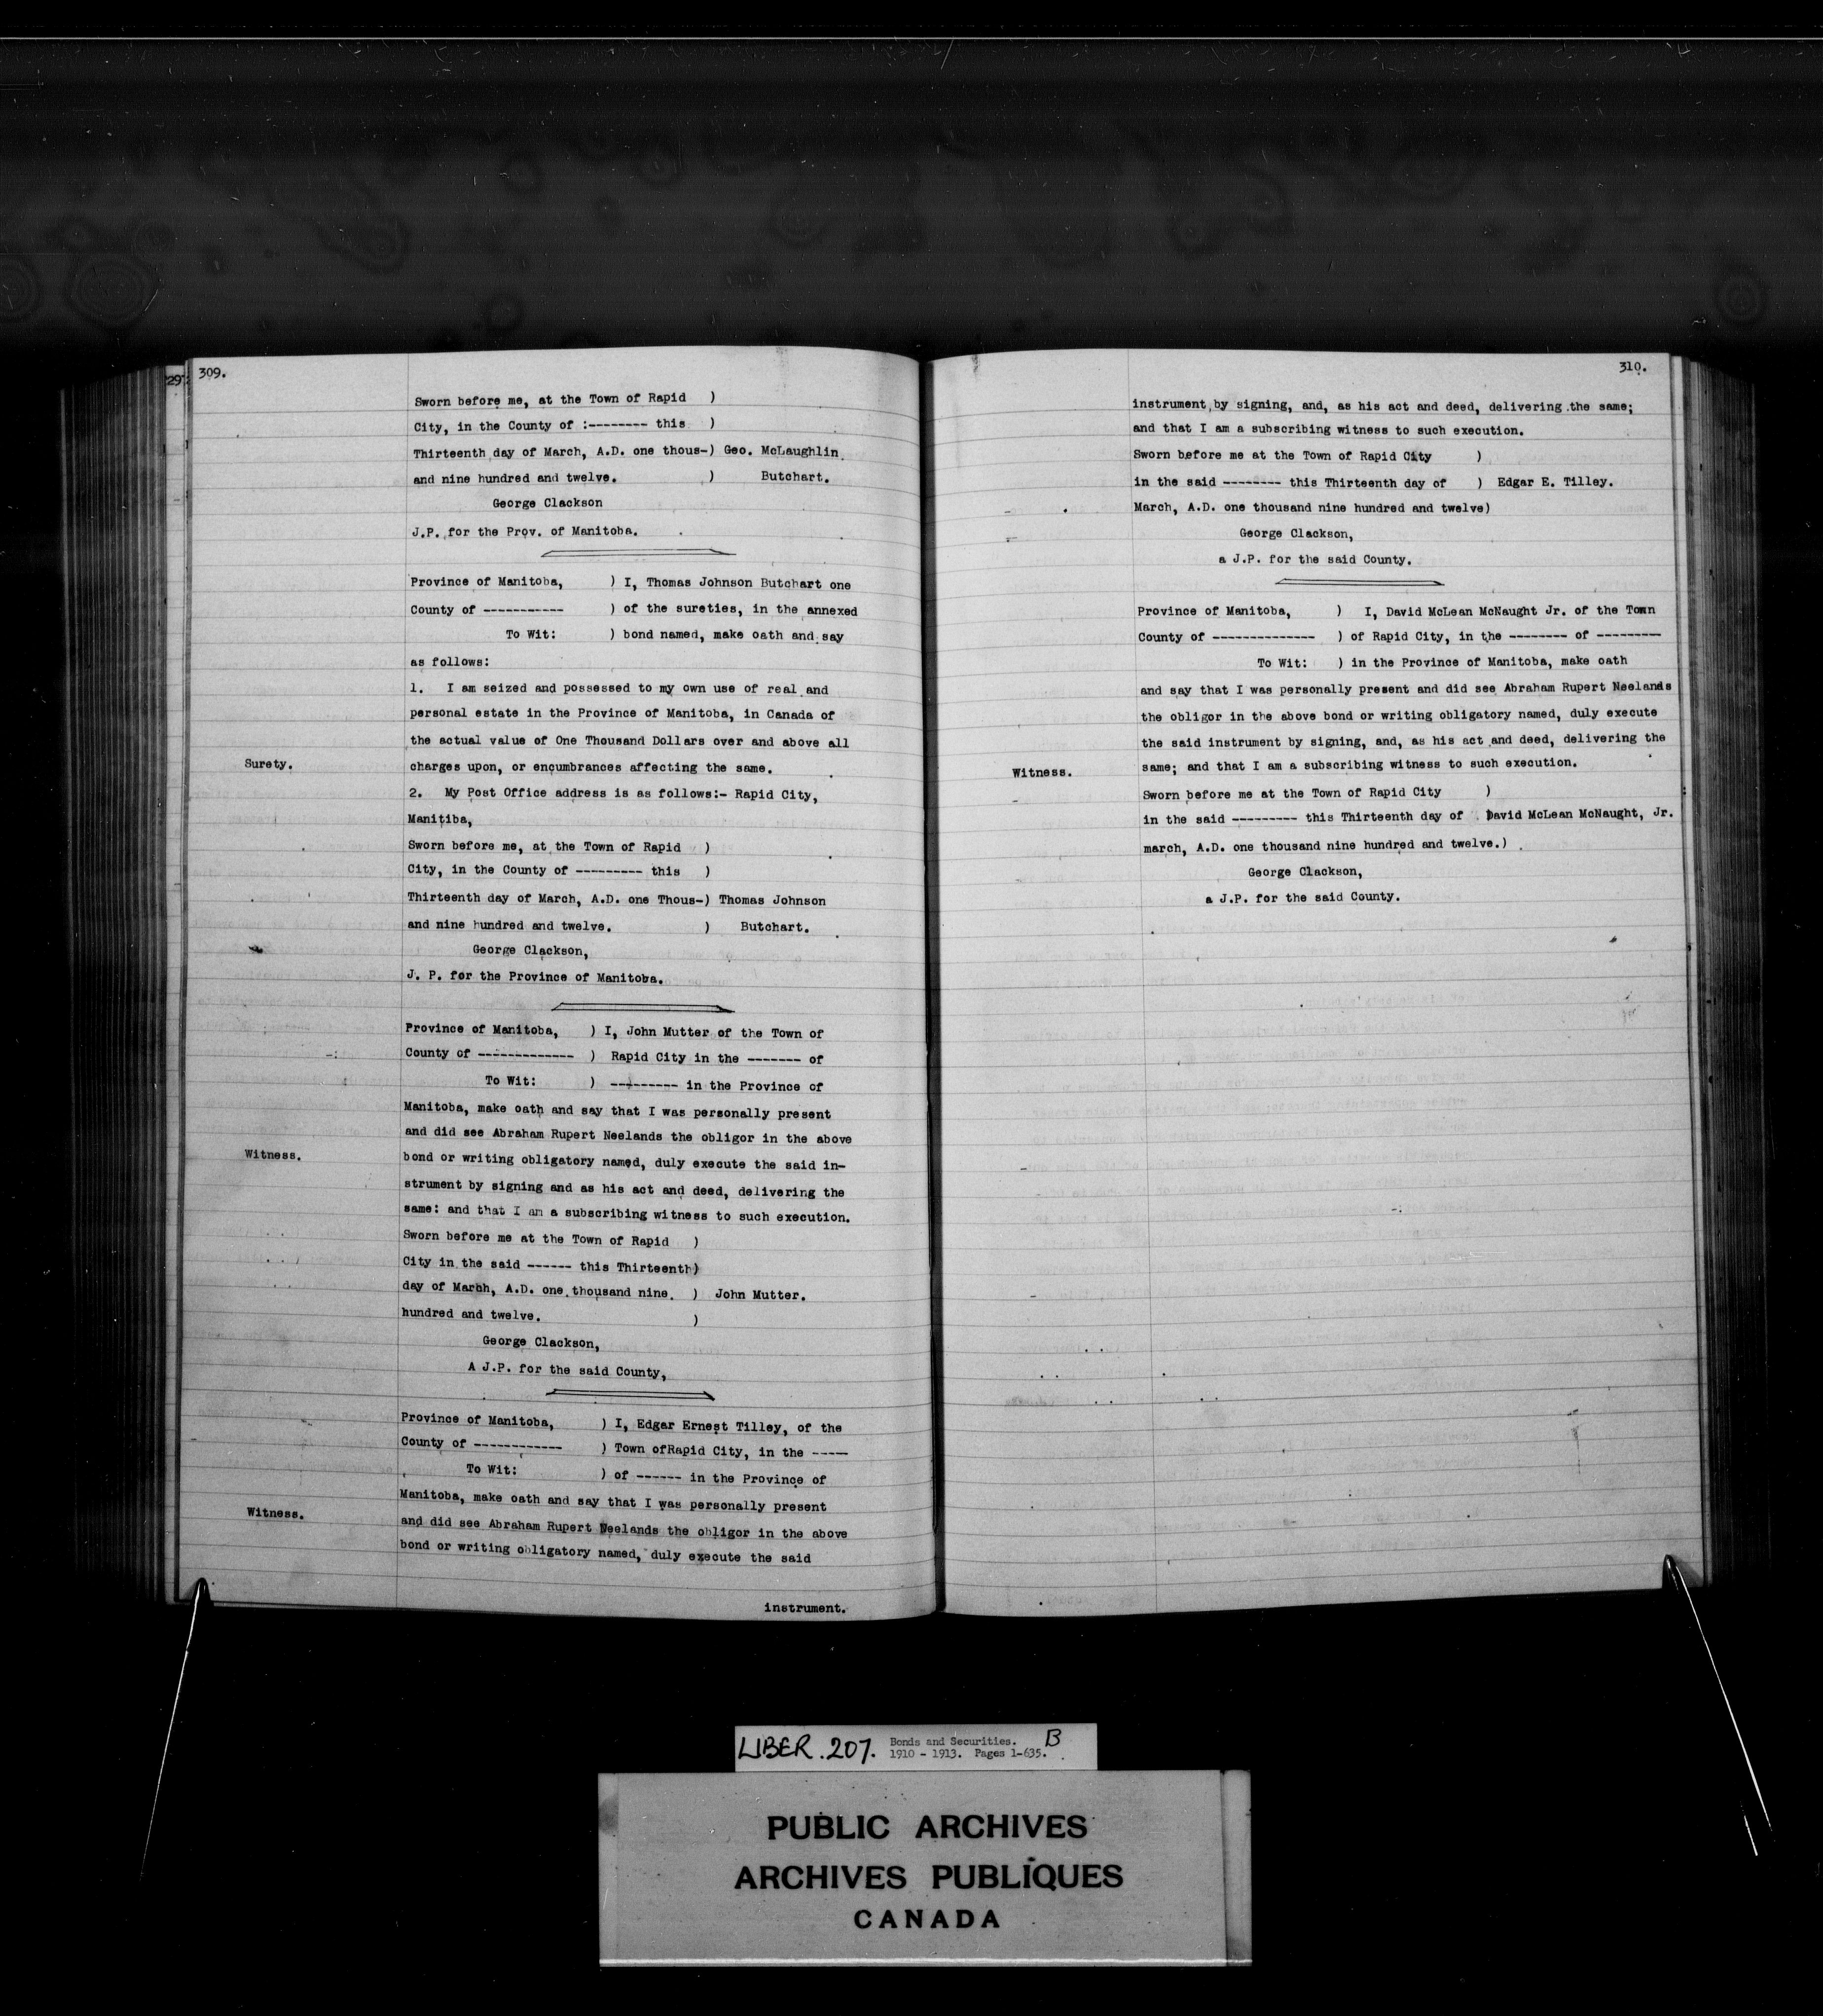 297
309.
Sworn before me, at the Town of Rapid )
City, in the County of :-------- this )
Thirteenth day of March, A.D. one thous-) Geo. McLaughlin
and nine hundred and twelve. ) Butchart.
George Clackson
J.P. for the Prov. of Manitoba.
Province of Manitoba, ) I, Thomas Johnson Butchart one
County of ----------- ) of the sureties, in the annexed
To Wit: ) bond named, make oath and say
as follows:
1. I am seized and possessed to my own use of real and
personal estate in the Province of Manitoba, in Canada of
the actual value of One Thousand Dollars over and above all
Surety.
charges upon, or encumbrances affecting the same.
2. My Post Office address is as follows:- Rapid City,
Manitiba,
Sworn before me, at the Town of Rapid )
City, in the County of --------- this )
Thirteenth day of March, A.D. one Thous-) Thomas Johnson
and nine hundred and twelve. ) Butchart.
George Clackson,
J. P. for the Province of Manitoba.
Province of Manitoba, ) I, John Mutter of the Town of
County of ------------- ) Rapid City in the ------- of
To Wit: ) --------- in the Province of
Manitoba, make oath and say that I was personally present
and did see Abraham Rupert Neelands the obligor in the above
Witness.
bond or writing obligatory named, duly execute the said in-
strument by signing and as his act and deed, delivering the
same: and that I am a subscribing witness to such execution.
Sworn before me at the Town of Rapid )
City in the said ------ this Thirteenth)
day of March, A.D. one thousand nine ) John Mutter.
hundred and twelve. )
George Clackson,
A J.P. for the said County,
Province of Manitoba, ) I, Edgar Ernest Tilley, of the
County of ------------ ) Town ofRapid City, in the -----
To Wit: ) of ------ in the Province of
Manitoba, make oath and say that I was personally present
Witness.
and did see Abraham Rupert Neelands the obligor in the above
bond or writing obligatory named, duly execute the said
instrument.
310.
instrument by signing, and, as his act and deed, delivering the same;
and that I am a subscribing witness to such execution.
Sworn before me at the Town of Rapid City )
in the said -------- this Thirteenth day of ) Edgar E. Tilley.
March, A.D. one thousand nine hundred and twelve)
George Clackson,
a J.P. for the said County.
Province of Manitoba, ) I, David McLean McNaught Jr. of the Town
County of -------------- ) of Rapid City, in the -------- of ---------
To Wit: ) in the Province of Manitoba, make oath
and say that I was personally present and did see Abraham Rupert Neelands
the obligor in the above bond or writing obligatory named, duly execute
the said instrument by signing, and, as his act and deed, delivering the
Witness.
same; and that I am a subscribing witness to such execution.
Sworn before me at the Town of Rapid City )
in the said --------- this Thirteenth day of David McLean McNaught, Jr.
march, A.D. one thousand nine hundred and twelve.)
George Clackson,
a J.P. for the said County.
LIBER. 207. Bonds and Securities. B
1910 - 1913. Pages 1-635.
PUBLIC ARCHIVES
ARCHIVES PUBLIQUES
CANADA